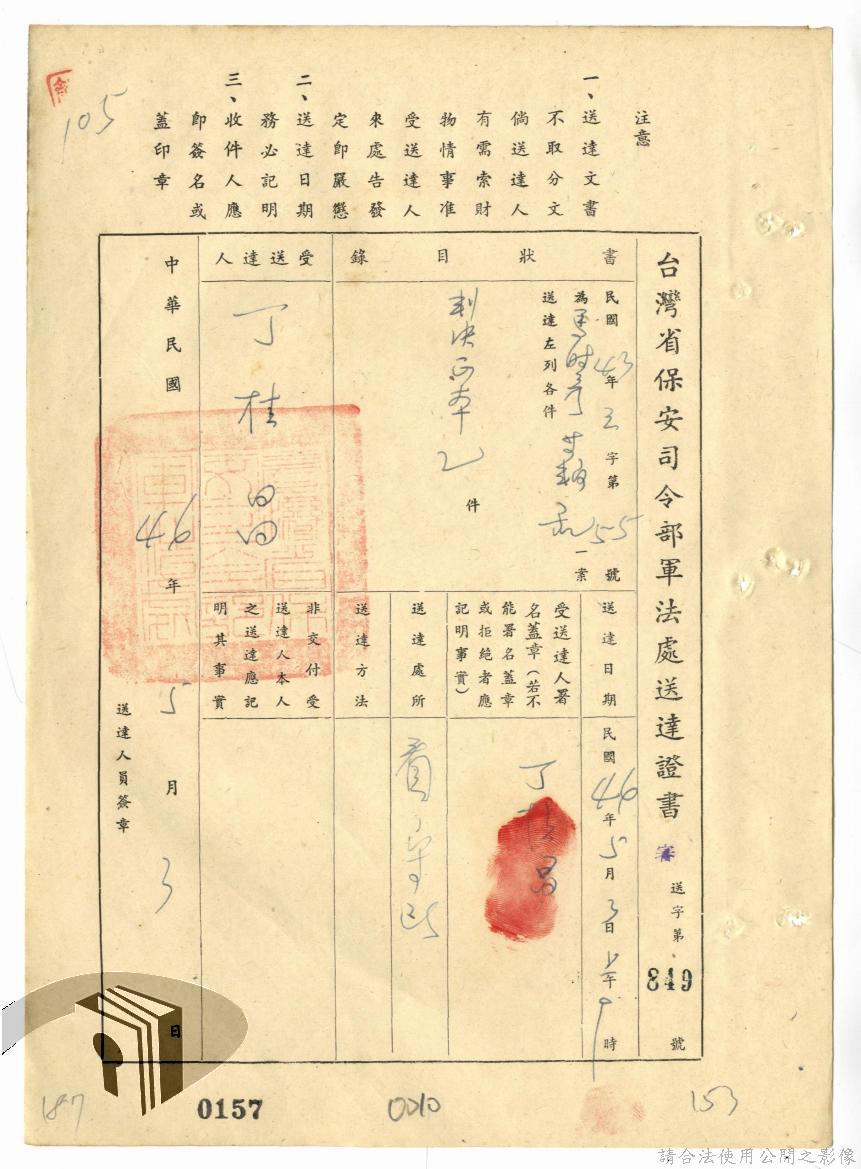 注意
一、送達文書
不取分文
倘送達人
有需索財
物情事准
受送達人
來處告發
定即嚴懲
二、送達日期
務必記明
三、收件人應
即簽名或
蓋印章
105
台灣省保安司令部軍法處送達證書
審 送字第 849 號
書狀目錄
民國43年 字第55號
為 一案
送達左列各件
判決正本乙件
受送達人
丁桂昌
送達日期
民國46年5月3日上午9時
受送達人署
名蓋章(若不
能署名蓋章
或拒絕者應
記明事實)
丁桂昌
送達處所
看守所
送達方法
非交付受
送達人本人
之送達應記
明其事實
中華民國46年5月3日
送達人員簽章
187
0157
0010
153
請合法使用公開之影像